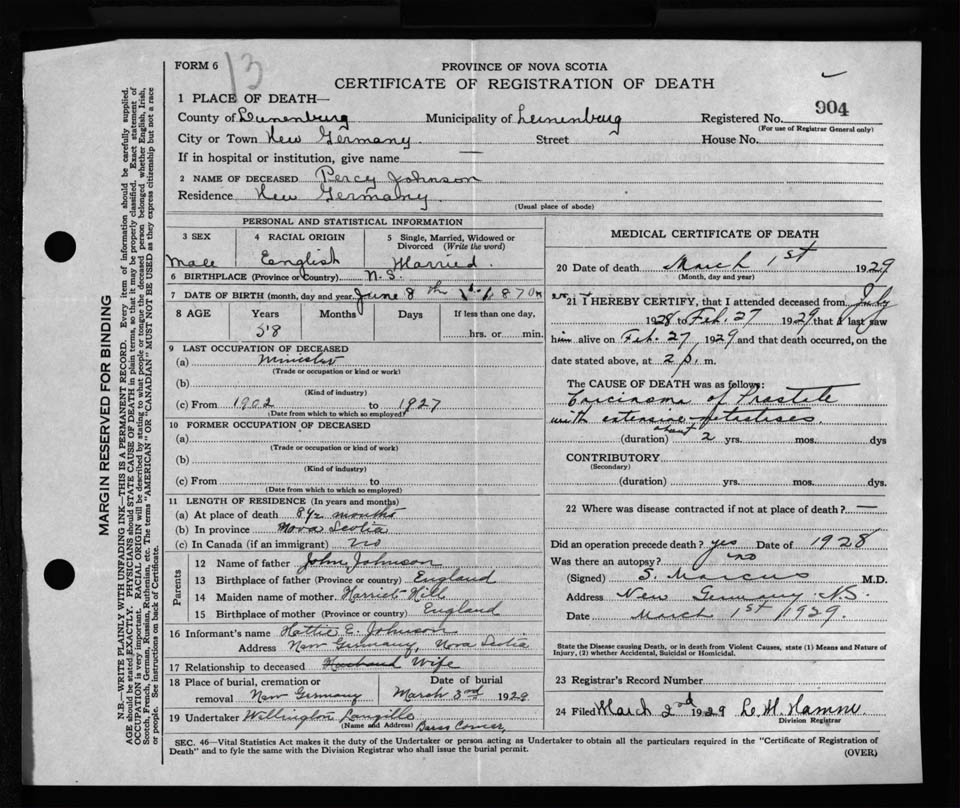 FORM 6
13
PROVINCE OF NOVA SCOTIA
CERTIFICATE OF REGISTRATION OF DEATH
1 PLACE OF DEATH—
904
County of Lunenburg Municipality of Lunenburg Registered No.
(For use of Registrar General only)
City or Town New Germany Street House No.
If in hospital or institution, give name —
2 NAME OF DECEASED Percy Johnson
Residence New Germany
(Usual place of abode)
PERSONAL AND STATISTICAL INFORMATION
3 SEX 4 RACIAL ORIGIN 5 Single, Married, Widowed or Divorced (Write the word)
Male English Married.
6 BIRTHPLACE (Province or Country) N.S.
7 DATE OF BIRTH (month, day and year) June 8th 1870
8 AGE Years Months Days If less than one day,
58 hrs. or min.
9 LAST OCCUPATION OF DECEASED
(a) Minister
(Trade or occupation or kind or work)
(b)
(Kind of industry)
(c) From 1902 to 1927
(Date from which to which so employed)
10 FORMER OCCUPATION OF DECEASED
(a)
(Trade or occupation or kind of work)
(b)
(Kind of industry)
(c) From to
(Date from which to which so employed)
11 LENGTH OF RESIDENCE (In years and months)
(a) At place of death 8 1/2 months
(b) In province Nova Scotia
(c) In Canada (if an immigrant) no
Parents
12 Name of father John Johnson
13 Birthplace of father (Province or country) England
14 Maiden name of mother. Harriet Hill
15 Birthplace of mother (Province or country) England
16 Informant's name Hattie E. Johnson
Address New Germany, Nova Scotia
17 Relationship to deceased Husband Wife
18 Place of burial, cremation or removal New Germany Date of burial March 3rd 1929
19 Undertaker Wellington Langille
(Name and Address) Barss Corner,
MEDICAL CERTIFICATE OF DEATH
20 Date of death March 1st 1929
(Month, day and year)
21 I HEREBY CERTIFY, that I attended deceased from July
1928 to Feb. 27 1929 that I last saw
him alive on Feb. 27, 1929 and that death occurred, on the
date stated above, at 2 p. m.
The CAUSE OF DEATH was as follows:
Carcinoma of Prostate
with extensive metastases.
(duration) about 2 yrs. mos. dys
CONTRIBUTORY
(Secondary)
(duration) yrs. mos. dys.
22 Where was disease contracted if not at place of death? —
Did an operation precede death? yes Date of 1928
Was there an autopsy? no
(Signed) S. Marcus M.D.
Address New Germany N.S.
Date March 1st 1929.
State the Disease causing Death, or in death from Violent Causes, state (1) Means and Nature of
Injury, (2) whether Accidental, Suicidal or Homicidal.
23 Registrar's Record Number
24 Filed March 2nd 1929
Division Registrar
SEC. 46—Vital Statistics Act makes it the duty of the Undertaker or person acting as Undertaker to obtain all the particulars required in the "Certificate of Registration of
Death" and to fyle the same with the Division Registrar who shall issue the burial permit.
(OVER)
MARGIN RESERVED FOR BINDING
N.B.—WRITE PLAINLY WITH UNFADING INK—THIS IS A PERMANENT RECORD. Every item of information should be carefully supplied.
AGE should be stated EXACTLY. PHYSICIANS should STATE CAUSE OF DEATH in plain terms, so that it may be properly classified. Exact statement of
OCCUPATION is very important. RACIAL ORIGIN will be described by stating to what people or tongue the deceased person belonged whether English, Irish,
Scotch, French, German, Russian, Ruthenian, etc. The terms "AMERICAN" OR "CANADIAN" MUST NOT BE USED as they express citizenship but not a race
or people. See instructions on back of Certificate.